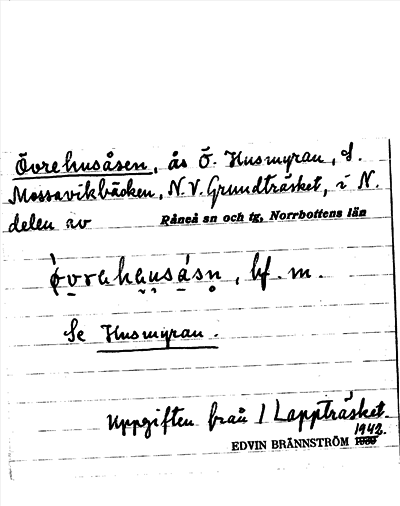 Övrehusåsen, ås Ö. Husmyran, S.
Mossavikbäcken, N.V. Grundträsket, i N.
delen av Råneå sn och tg, Norrbottens län
bf. m.
Se Husmyran.
Uppgiften från 1 Lappträsket.
1942.
EDVIN BRÄNNSTRÖM 1939